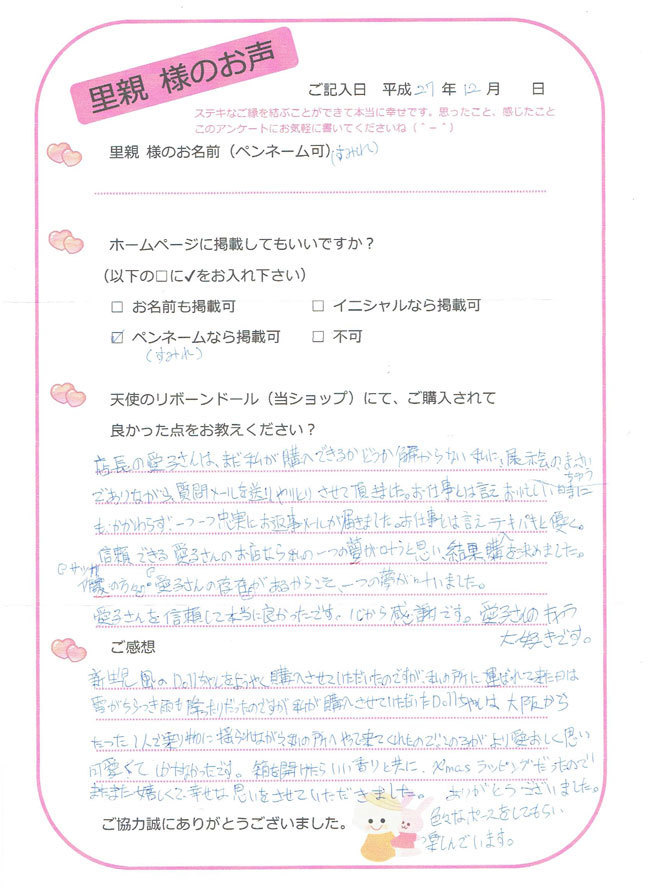 里親 様のお声
ご記入日 平成 27 年 12 月 日
ステキなご縁を結ぶことができて本当に幸せです。思ったこと、感じたこと
このアンケートにお気軽に書いてくださいね(＾－＾)
里親 様のお名前(ペンネーム可)(すみれ)
ホームページに掲載してもいいですか？
(以下の□に✓をお入れ下さい)
□ お名前も掲載可 □ イニシャルなら掲載可
☑ ペンネームなら掲載可 □ 不可
(すみれ)
天使のリボーンドール(当ショップ)にて、ご購入されて
良かった点をお教えください？
店長の愛子さんは、まだ私が購入できるかどうか解からない私に、展示会のまっさい
ちゅう
でありながら、質問メールを送りやりとりさせて頂きました。お仕事とは言えお忙しい時に
もかかわらず一つ一つ忠実にお返事メールが届きました。お仕事とは言えテキパキと優しく。
信頼できる愛子さんのお店なら私の一つの夢が叶うと思い、結果購入を決めました。
愛子さんの存在があるからこそ、一つの夢が叶いました。
愛子さんを信頼して本当に良かったです。心から感謝です。愛子さんの
大好きです。
ご感想
新生児風のDollちゃんをようやく購入させていただいたのですが、私の所に運ばれて来た日は
雪がちらつき雨も降ったりだったのですが私が購入させていただいたDollちゃんは大阪から
たった1人で乗り物に揺られながら私の所へやって来てくれたのでいとしさがより愛おしく思い
可愛くてしかたなかったです。箱を開けたらいい香りと共に、Xmasラッピングだったので
またまた嬉しくて幸せな思いをさせていただきました。ありがとうございました。
ご協力誠にありがとうございました。
色々なポーズをしてもらい
楽しんでいます。